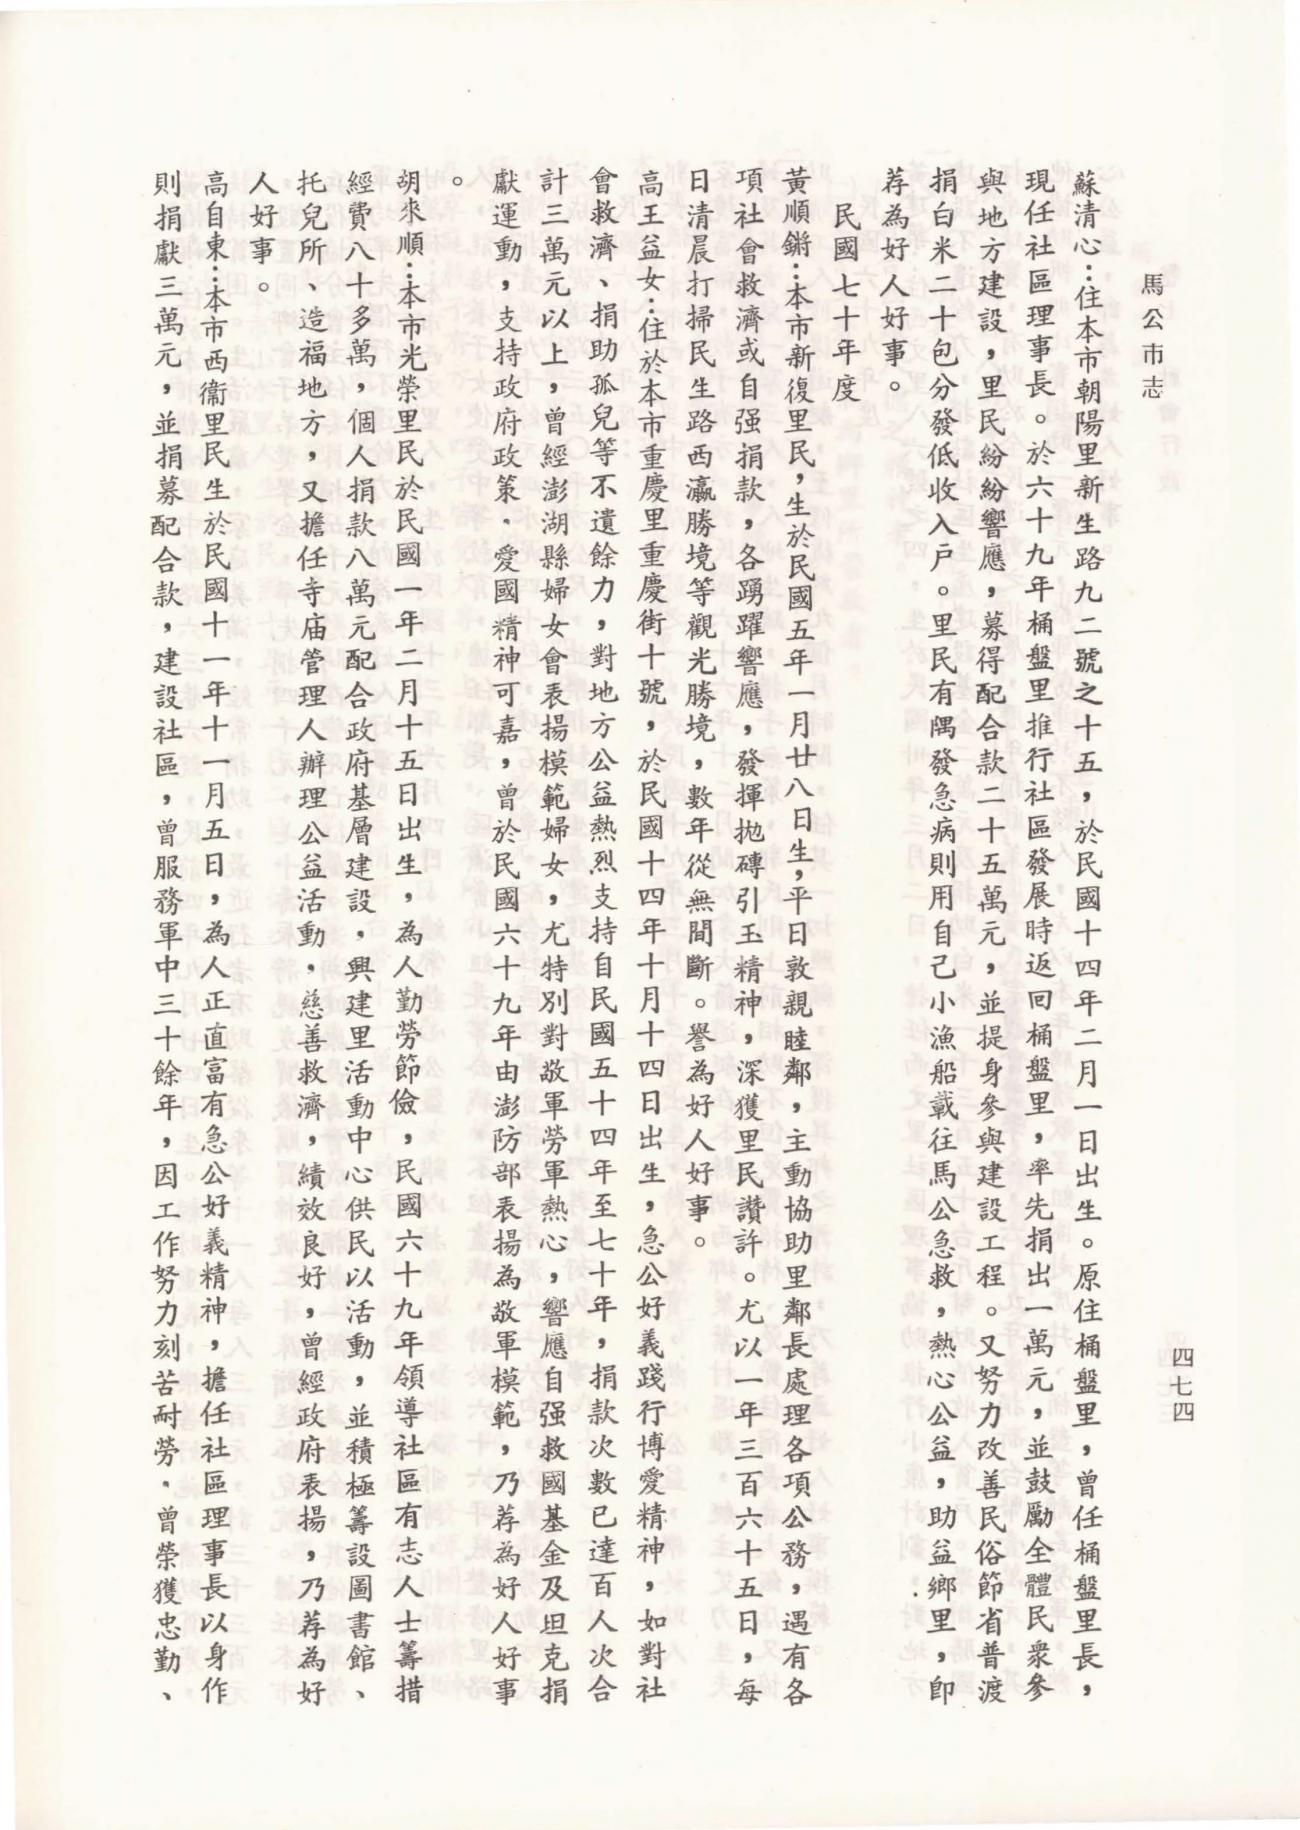 馬公市志
四七四
蘇清心：住本市朝陽里新生路九二號之十五，於民國十四年二月一日出生。原住桶盤里，曾任桶盤里長，
現任社區理事長。於六十九年桶盤里推行社區發展時返回桶盤里，率先捐出一萬元，並鼓勵全體民衆參
與地方建設，里民紛紛響應，募得配合款二十五萬元，並提身參與建設工程。又努力改善民俗節省普渡
捐白米二十包分發低收入戶。里民有隅發急病則用自己小漁船載往馬公急救，熱心公益，助益鄉里，卽
荐為好人好事。
民國七十年度
黃順鏘：本市新復里民，生於民國五年一月廿八日生，平日敦親睦鄰，主動協助里鄰長處理各項公務，遇有各
項社會救濟或自强捐款，各踴躍響應，發揮拋磚引玉精神，深獲里民讚許。尤以一年三百六十五日，每
日清晨打掃民生路西瀛勝境等觀光勝境，數年從無間斷。譽為好人好事。
高王益女：住於本市重慶里重慶街十號，於民國十四年十月十四日出生，急公好義踐行博愛精神，如對社
會救濟、捐助孤兒等不遺餘力，對地方公益熱烈支持自民國五十四年至七十年，捐款次數已達百人次合
計三萬元以上，曾經澎湖縣婦女會表揚模範婦女，尤特別對敬軍勞軍熱心，響應自强救國基金及坦克捐
獻運動，支持政府政策．愛國精神可嘉，曾於民國六十九年由澎防部表揚為敬軍模範，乃荐為好人好事
。
胡來順：本市光榮里民於民國一年二月十五日出生，為人勤勞節儉，民國六十九年領導社區有志人士籌措
經費八十多萬，個人捐款八萬元配合政府基層建設，興建里活動中心供民以活動，並積極籌設圖書館、
托兒所、造福地方，又擔任寺庙管理人辦理公益活動，慈善救濟，績效良好，曾經政府表揚，乃荐為好
人好事。
高自東：本市西衞里民生於民國十一年十一月五日，為人正直富有急公好義精神，擔任社區理事長以身作
則捐獻三萬元，並捐募配合款，建設社區，曾服務軍中三十餘年，因工作努力刻苦耐勞．曾榮獲忠勤、